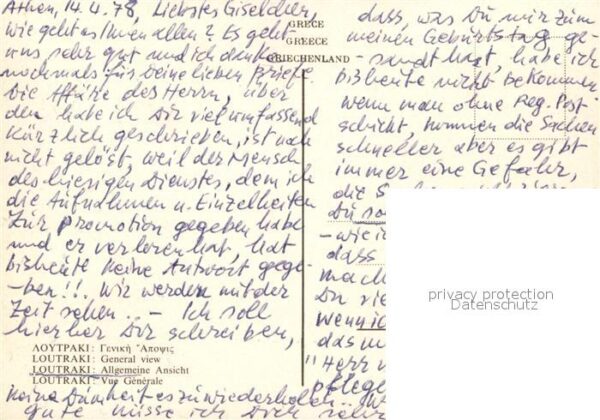 Athen, 14.4.78, Liebstes Giselcher,
wie geht es Ihnen allen? Es geht
uns sehr gut und ich danke
nochmals für Deine lieben Briefe.
Die Affäre des Herrn, über
den habe ich Dir viel umfassend
kürzlich geschrieben, ist noch
nicht gelöst, weil der Mensch
des hiesigen Dienstes, dem ich
die Aufnahmen u. Einzelheiten
zur Promotion gegeben habe
und er verloren hat, hat
bis heute keine Antwort gege-
ben!!, wir werden mit der
Zeit sehen.. - Ich soll
hier her Dir schreiben,
ΛΟΥΤΡΑΚΙ: Γενική Ἄποψις
LOUTRAKI: General view
LOUTRAKI: Allgemeine Ansicht
LOUTRAKI: Vue Générale
keine Dummheit es zu wiederholen..
gute misse ich Dich sehr
GRECE
GREECE
GRIECHENLAND
dass, was Du mir zum
meinen Geburtstag ge-
sandt hast, habe ich
bis heute nicht bekommen
wenn man ohne Reg. Post
schickt, kommen die Sachen
schneller aber es gibt
immer eine Gefahr,
die
Du
- wie
dass
mach
Du vie
wenn ich
das m
"Herr
pflege
privacy protection
Datenschutz